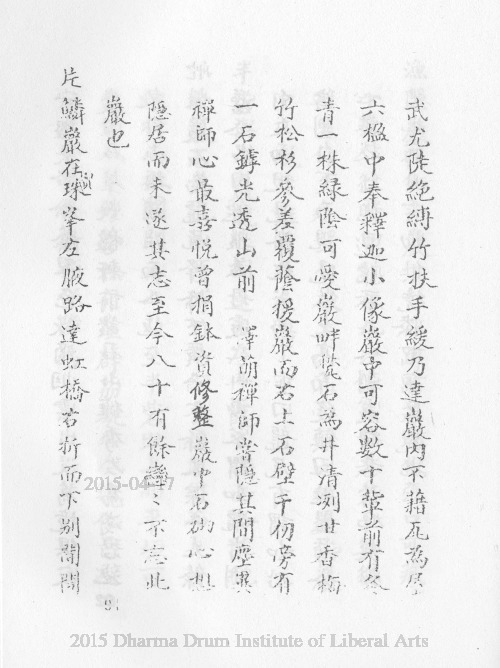 武尤陡絶縛竹扶手緩乃達巖內不藉瓦為屋
六楹中奉釋迦小像巖中可容數十輩前有冬
青一株緑陰可愛巖畔甃石為井清冽甘香梅
竹松杉參差覆蔭援巖而若上石壁千仞旁有
一石罅光透山前 澤萌禪師嘗隱其間塵異
禪師心最喜悅曾捐鉢資修整巖中石砌心想
隱居而未遂其志至今八十有餘戀々不忘此
巖也
片鱗巖在珠峯左腋路達虹橋右折而下別闢
91
2015-04-17
2015 Dharma Drum Institute of Liberal Arts